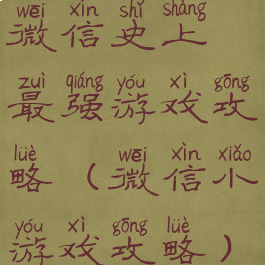 wēi xìn shǐ shàng
微信史上
zuì qiáng yóu xì gōng
最强游戏攻
lüè ( wēi xìn xiǎo
略（微信小
yóu xì gōng lüè )
游戏攻略）